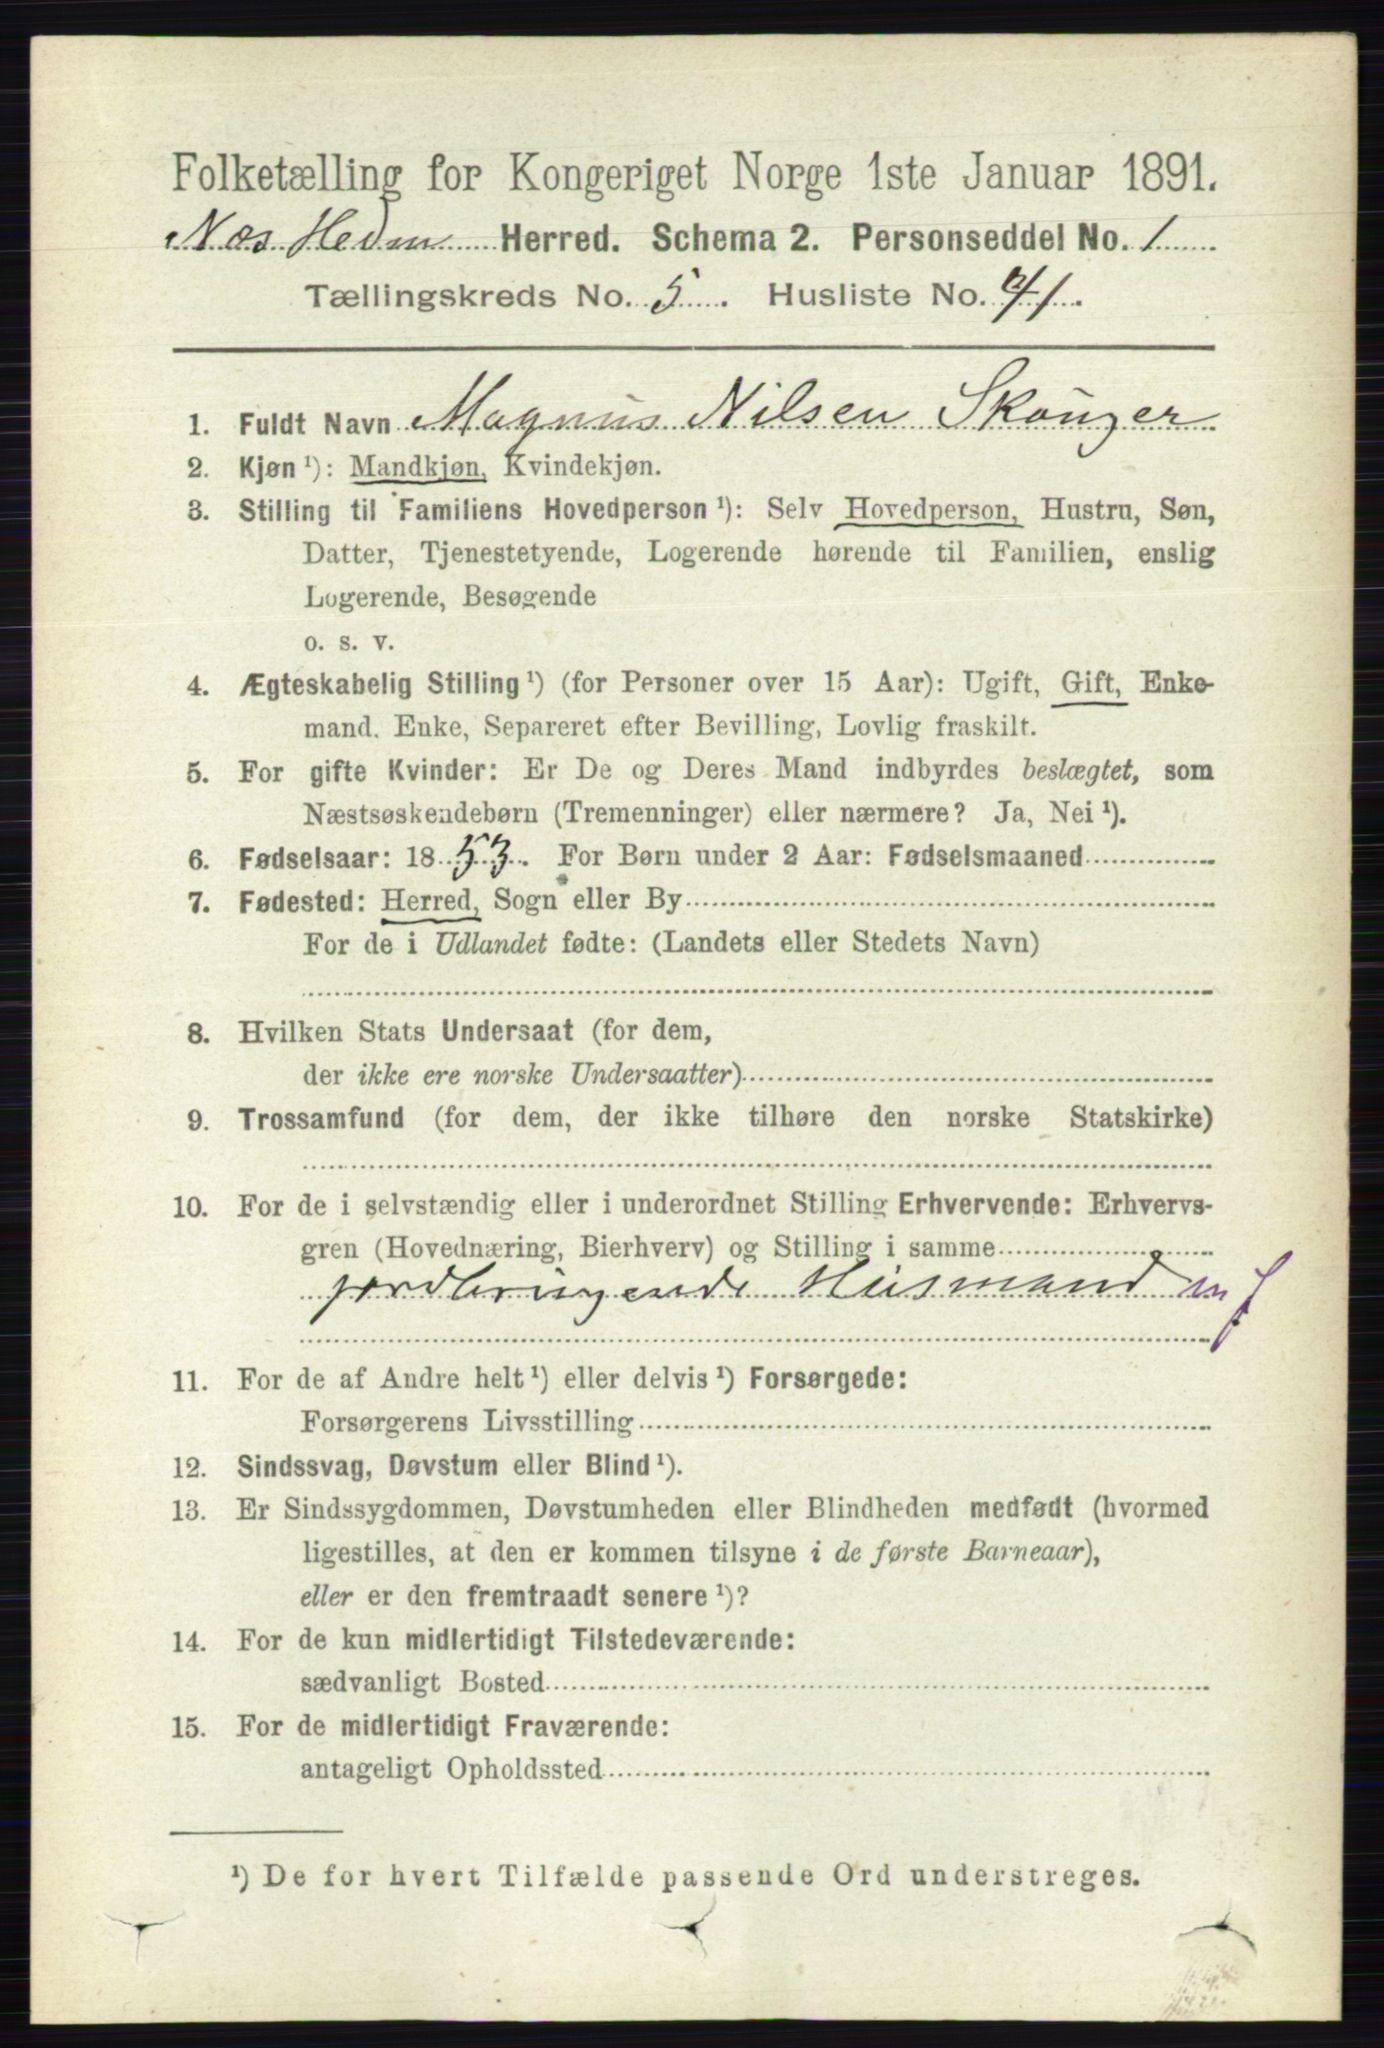 Folketælling for Kongeriget Norge 1ste Januar 1891.
Næs Hedm Herred. Schema 2. Personseddel No. 1
Tællingskreds No. 5. Husliste No. 41.
1. Fuldt Navn Magnus Nilsen
2. Kjøn ¹): Mandkjøn, Kvindekjøn.
3. Stilling til Familiens Hovedperson ¹): Selv Hovedperson, Hustru, Søn,
Datter, Tjenestetyende, Logerende hørende til Familien, enslig
Logerende, Besøgende
o. s. v.
4. Ægteskabelig Stilling ¹) (for Personer over 15 Aar): Ugift, Gift, Enke-
mand, Enke, Separeret efter Bevilling, Lovlig fraskilt.
5. For gifte Kvinder: Er De og Deres Mand indbyrdes beslægtet, som
Næstsøskendebørn (Tremenninger) eller nærmere? Ja, Nei ¹).
6. Fødselsaar: 1853. For Børn under 2 Aar: Fødselsmaaned
7. Fødested: Herred, Sogn eller By
For de i Udlandet fødte: (Landets eller Stedets Navn)
8. Hvilken Stats Undersaat (for dem,
der ikke ere norske Undersaatter)
9. Trossamfund (for dem, der ikke tilhøre den norske Statskirke)
10. For de i selvstændig eller i underordnet Stilling Erhvervende: Erhvervs-
gren (Hovednæring, Bierhverv) og Stilling i samme
jordbrugende Husmand m j
11. For de af Andre helt ¹) eller delvis ¹) Forsørgede:
Forsørgerens Livsstilling
12. Sindssvag, Døvstum eller Blind ¹).
13. Er Sindssygdommen, Døvstumheden eller Blindheden medfødt (hvormed
ligestilles, at den er kommen tilsyne i de første Barneaar),
eller er den fremtraadt senere ¹)?
14. For de kun midlertidigt Tilstedeværende:
sædvanligt Bosted
15. For de midlertidigt Fraværende:
antageligt Opholdssted
¹) De for hvert Tilfælde passende Ord understreges.